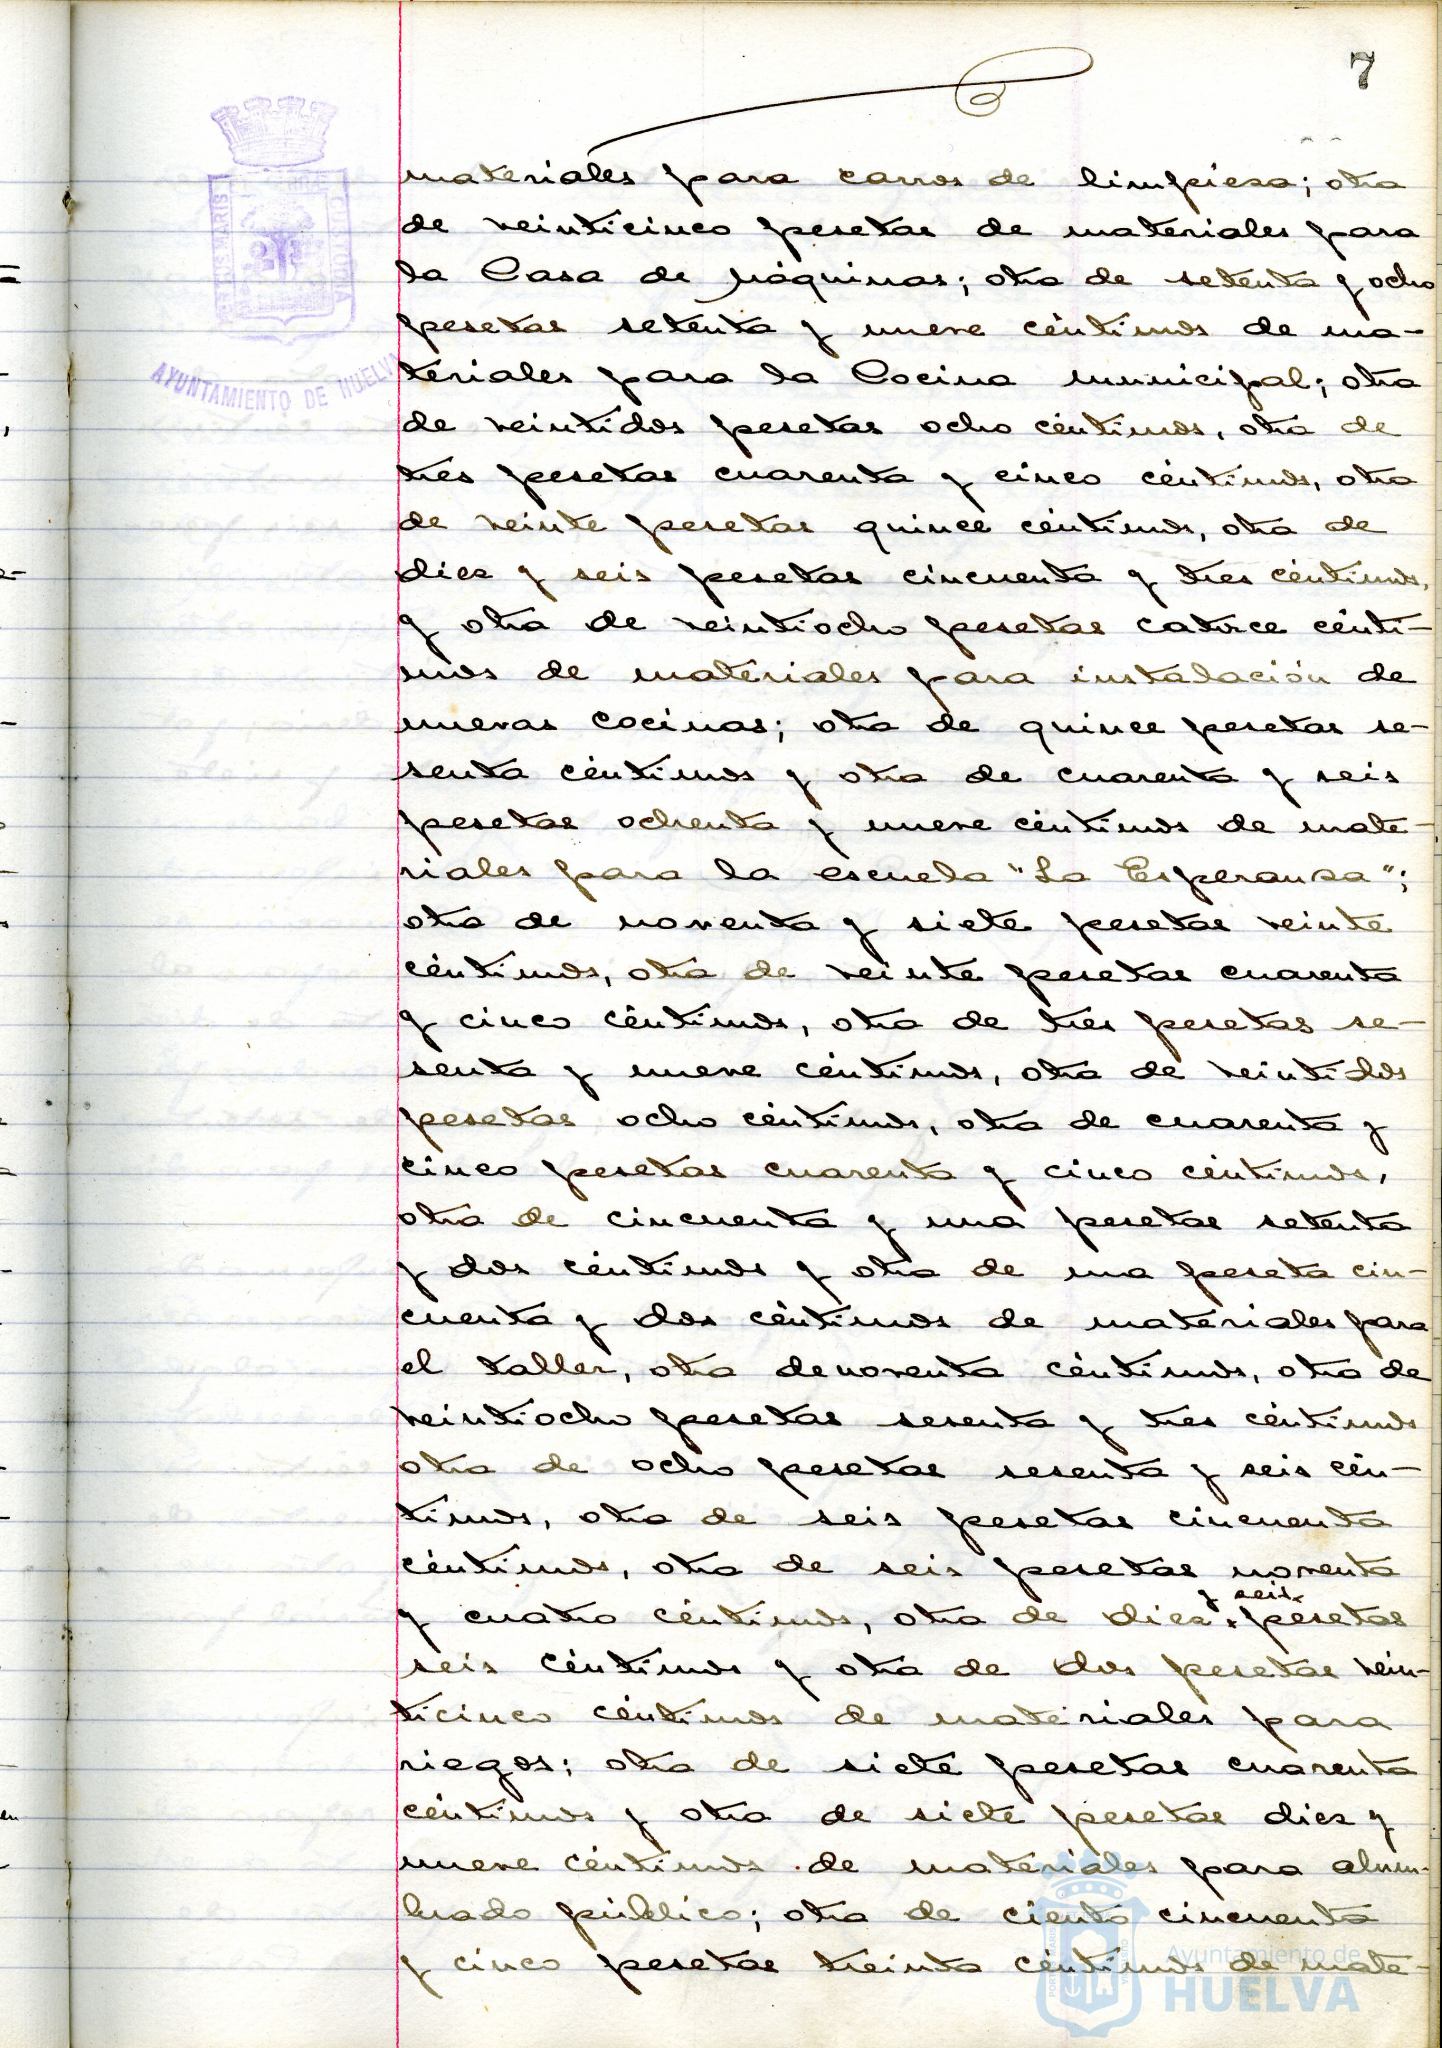 7
materiales para carros de limpieza; otra
de veinticinco pesetas de materiales para
la Casa de Máquinas; otra de setenta y ocho
pesetas setenta y nueve céntimos de ma-
teriales para la Cocina municipal; otra
de veintidos pesetas ocho céntimos, otra de
tres pesetas cuarenta y cinco céntimos, otra
de veinte pesetas quince céntimos, otra de
diez y seis pesetas cincuenta y tres céntimos,
y otra de veintiocho pesetas catorce cénti-
mos de materiales para instalación de
nuevas cocinas; otra de quince pesetas se-
senta céntimos y otra de cuarenta y seis
pesetas ochenta y nueve céntimos de mate-
riales para la escuela "La Esperanza";
otra de noventa y siete pesetas veinte
céntimos, otra de veinte pesetas cuarenta
y cinco céntimos, otra de tres pesetas se-
senta y nueve céntimos, otra de veintidos
pesetas ocho céntimos, otra de cuarenta y
cinco pesetas cuarenta y cinco céntimos,
otra de cincuenta y una pesetas setenta
y dos céntimos y otra de una peseta cin-
cuenta y dos céntimos de materiales para
el taller, otra de noventa céntimos, otra de
veintiocho pesetas sesenta y tres céntimos
otra de ocho pesetas sesenta y seis cén-
timos, otra de seis pesetas cincuenta
céntimos, otra de seis pesetas noventa
y cuatro céntimos, otra de diez y seis pesetas
seis céntimos y otra de dos pesetas vein-
ticinco céntimos de materiales para
riegos; otra de siete pesetas cuarenta
céntimos y otra de siete pesetas diez y
nueve céntimos de materiales para alum-
brado público; otra de ciento cincuenta
y cinco pesetas treinta céntimos de mate-
AYUNTAMIENTO DE HUELVA
Ayuntamiento de
HUELVA